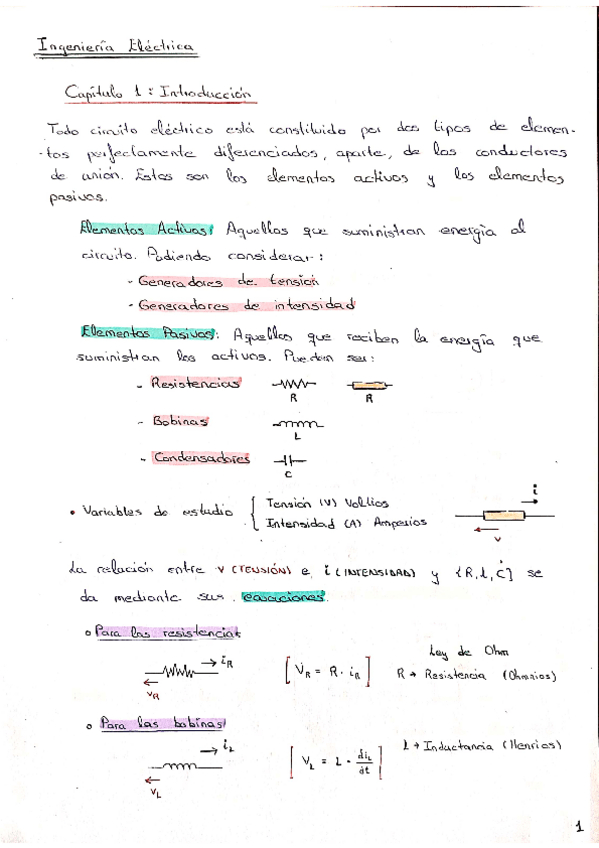 Ingeniería Eléctrica
Capítulo 1: Introducción
Todo circuito eléctrico está constituido por dos tipos de elemen-
-tos perfectamente diferenciados, aparte, de los conductores
de unión. Estos son los elementos activos y los elementos
pasivos.
Elementos Activos: Aquellos que suministran energía al
circuito. Pudiendo considerar:
- Generadores de tensión
- Generadores de intensidad
Elementos Pasivos: Aquellos que reciben la energía que
suministran los activos. Pueden ser:
- Resistencias
R R
- Bobinas
L
- Condensadores
C
• Variables de estudio { Tensión (V) Voltios
Intensidad (A) Amperios
i
v
La relación entre v (TENSIÓN) e i (INTENSIDAD) y {R, L, C} se
da mediante sus ecuaciones.
o Para las resistencias
iR
vR
[VR = R · iR]
Ley de Ohm
R → Resistencia (Ohmios)
o Para las bobinas
iL
vL
[VL = L · diL/dt]
L → Inductancia (Henrios)
1